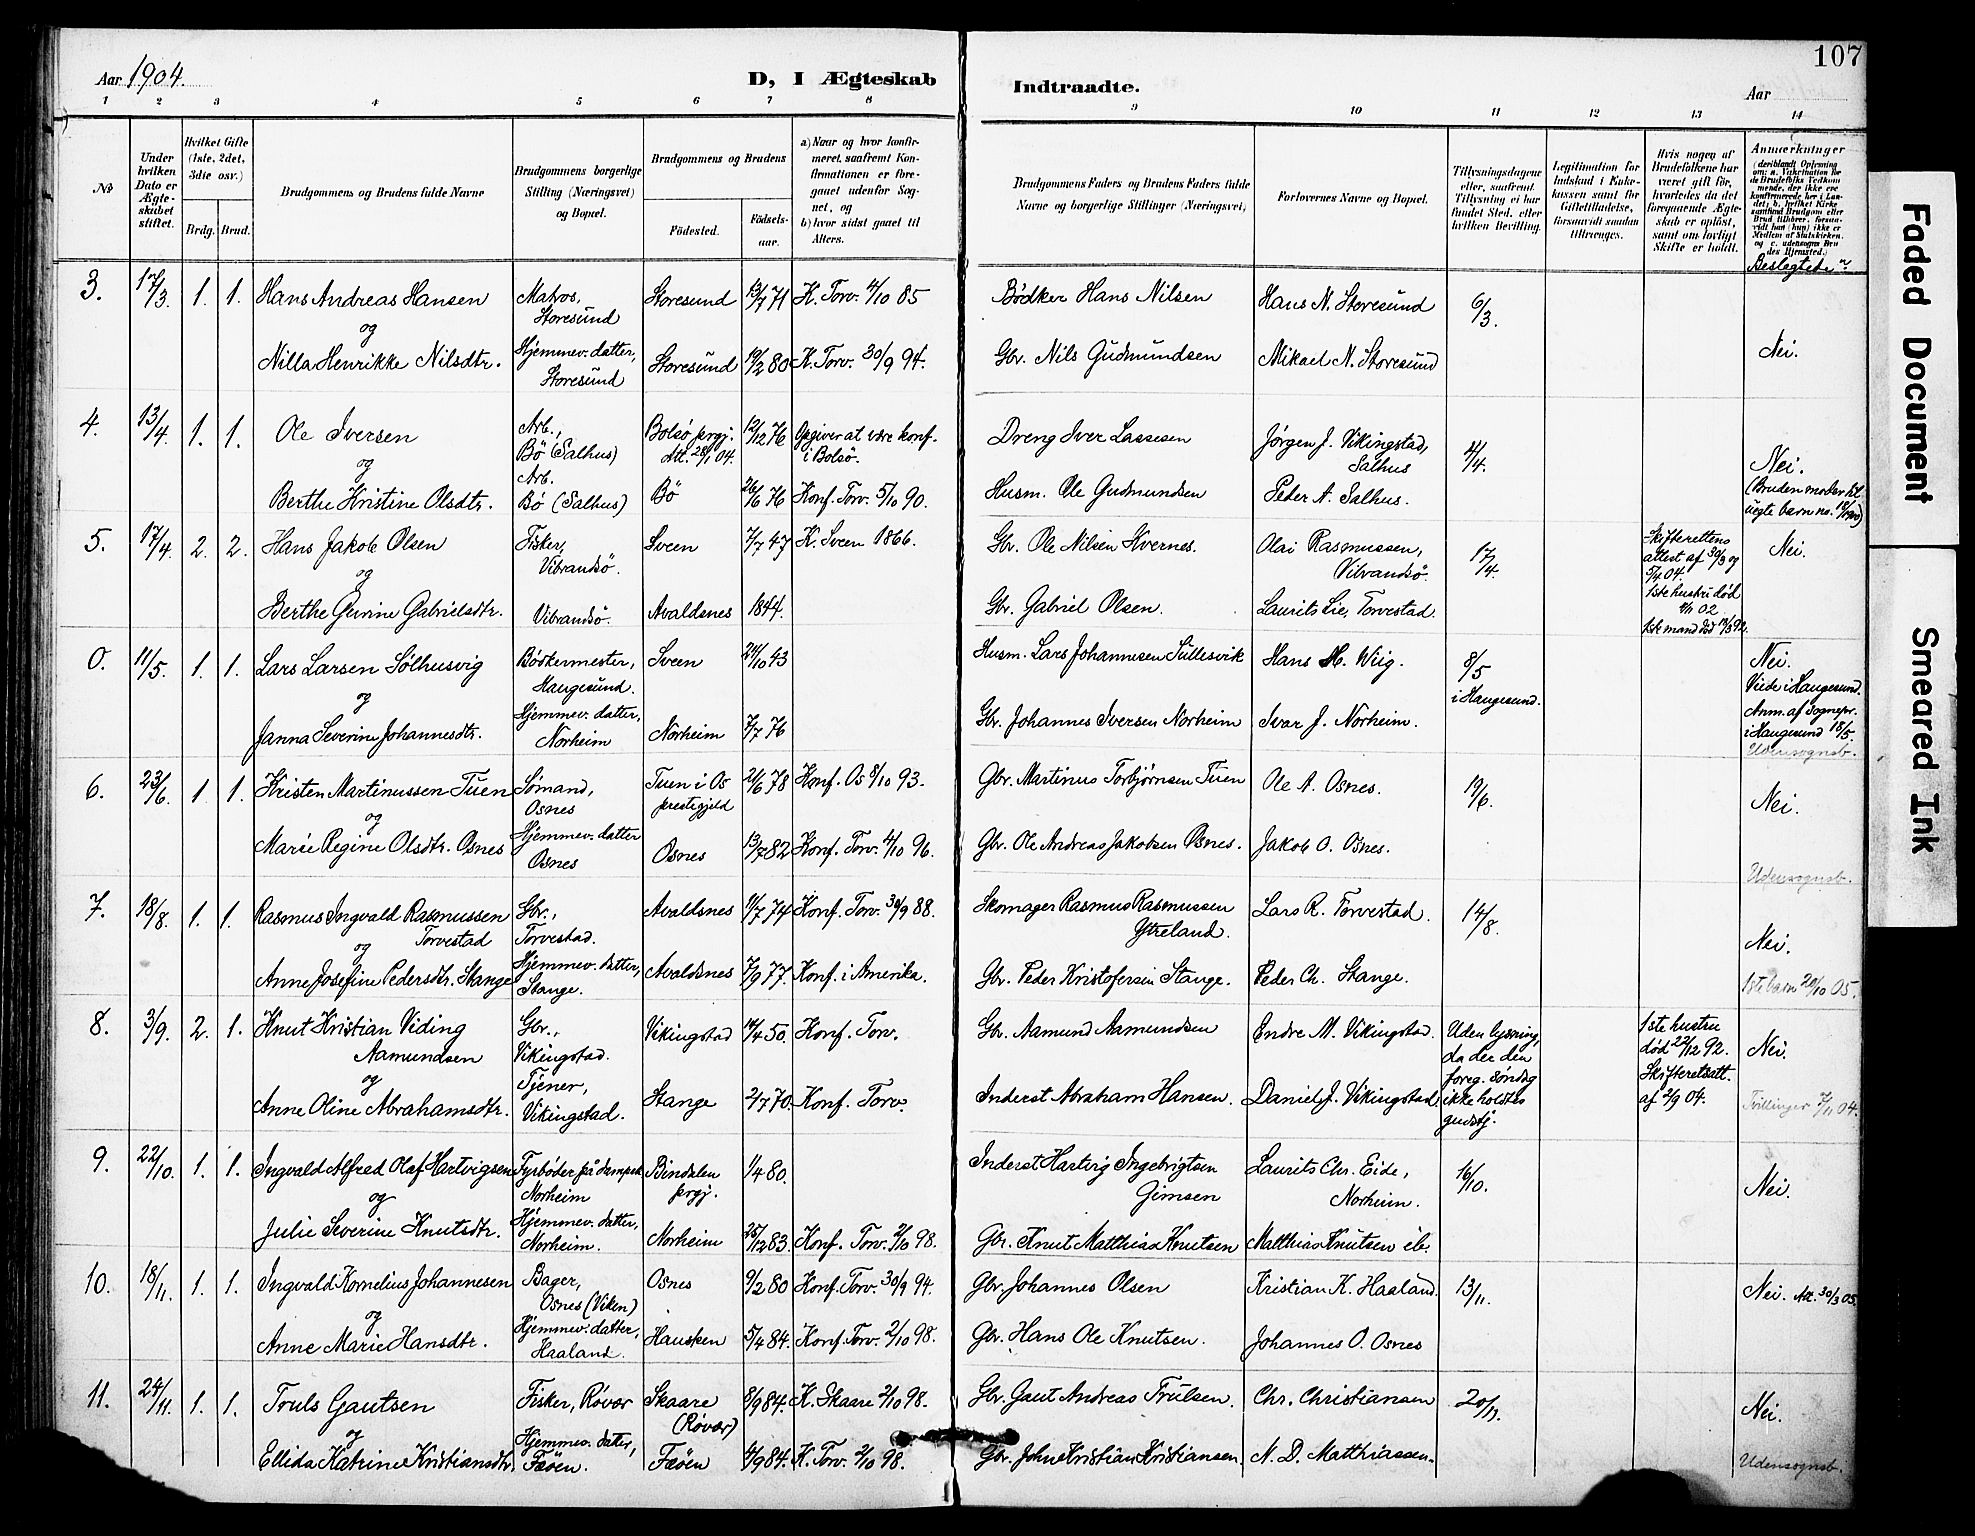 107
Aar 1904.
D, I Ægteskab Indtraadte.
Aar
1 2 3 4 5 6 7 8 9 10 11 12 13 14
No
Under hvilken Dato er Ægteskabet stiftet.
Hvilket Gifte (1ste, 2det, 3die osv.)
Brdg. Brud.
Brudgommens og Brudens fulde Navne
Brudgommens borgerlige Stilling (Næringsvei) og Bopæl.
Brudgommens og Brudens
Födested.
Födselsaar.
a) Naar og hvor konfirmeret, saafremt Konfirmationen er foregaaet udenfor Sognet, og
b) hvor sidst gaaet til Alters.
Brudgommens Faders og Brudens Faders fulde Navne og borgerlige Stillinger (Næringsvei)
Forlovernes Navne og Bopæl.
Tillysningsdagene eller, saafremt Tillysning ei har fundet Sted, efter hvilken Bevilling.
Legitimation for Indskud i Enkekassen samt for Giftetilladelse, forsaavidt saadan tiltrænges.
Hvis nogen af Brudefolkene har været gift før, hvorledes da det foregaaende Ægteskab er oplöst, samt om lovligt Skifte er holdt.
Anmærkninger
Beslegtede?
3. 17/3. 1. 1. Hans Andreas Hansen Matros, Storesund Storesund 13/7 71 K. Torv. 4/10 85 Bödker Hans Nilsen Hans N. Storesund 6/3. Nei.
og
Nilla Henrikke Nilsdtr. Hjemmev. datter, Storesund Storesund 19/2 80 K. Torv. 30/9 94. Gbr. Nils Gudmundsen Mikael N. Storesund
4. 13/4. 1. 1. Ole Iversen Arb., Bö (Salhus) Bolsö prgj. Att. 28/1 04. 12/12 76 Opgiver at være konf. i Bolsö. Dreng Iver Lassesen Jörgen J. Vikingstad, Salhus 4/4. Nei.
og
Berthe Kristine Olsdtr. Arb. Bö (Salhus) Bö 26/6 76 Konf. Torv. 5/10 90. Husm. Ole Gudmundsen Peder A. Salhus. (Bruden moder til uegte barn no. 18/1900)
5. 17/4. 2. 2. Hans Jakob Olsen Fisker, Vibrandsö. Sveen 7/7 47 K. Sveen 1866. Gbr. Ole Nilsen Kvernes. Olai Rasmussen, Vibrandsö. 17/4. Skifterettens attest af 30/3 og 5/4 04. 1ste hustru död 4/1 02 Nei.
og
Berthe Gurine Gabrielsdtr. Vibrandsö. Avaldsnes 1844. Gbr. Gabriel Olsen. Laurits Lie, Torvestad. 1ste mand död
0. 11/5. 1. 1. Lars Larsen Sölhusvig Bödkermester, Haugesund. Sveen 24/10 43 Husm. Lars Johannesen Sullesvik Hans H. Wiig. 8/5 i Haugesund. Nei. Viede i Haugesund. Anm. af sognepr. i Haugesund 18/5.
og
Janna Severine Johannesdtr. Hjemmev. datter, Norheim Norheim 7/7 76 Gbr. Johannes Iversen Norheim Ivar J. Norheim. Udensognsb.
6. 23/6. 1 1. Kristen Martinussen Tuen Sömand, Osnes Tuen i Os prestegjeld 21/6 78 Konf. Os 8/10 93. Gbr. Martinus Torbjörnsen Tuen Ole A. Osnes. 19/6. Nei.
og
Marie Regine Olsdtr. Osnes Hjemmev. datter Osnes Osnes 13/7 82 Konf. Torv. 4/10 96. Gbr. Ole Andreas Jakobsen Osnes. Jakob O. Osnes. Udensognsb.
7. 18/8. 1. 1. Rasmus Ingvald Rasmussen Torvestad Gbr., Torvestad. Avaldsnes 11/7 74 Konf. Torv. 30/9 88. Skomager Rasmus Rasmussen Ytreland. Lars R. Torvestad. 14/8. Nei.
og
Anne Josefine Pedersdtr. Stange Hjemmev. datter, Stange. Avaldsnes 7/9 77. Konf. i Amerika. Gbr. Peder Kristofersen Stange. Peder Ch. Stange. 1ste barn 20/10 05.
8. 3/9. 2. 1. Knut Kristian Viding Aamundsen Gbr., Vikingstad. Vikingstad 14/4 50. Konf. Torv. Gbr. Aamund Aamundsen Endre M. Vikingstad. Uden lysning, da der den foreg. söndag ikke holdtes gudstj. 1ste hustru död 22/12 92. Skifteretsatt. af 2/9 04. Nei.
og
Anne Oline Abrahamsdtr. Tjener, Vikingstad. Stange 2/7 70. Konf. Torv. Inderst Abraham Hansen. Daniel J. Vikingstad. Tvillinger 7/11 04.
9. 22/10. 1. 1. Ingvald Alfred Olaf Hartvigsen Fyrböder på dampsk. Norheim Bindalen prgj. 1/4 80. Inderst Hartvig Ingebrigtsen Gimsen Laurits Chr. Eide, Norheim. 16/10. Nei.
og
Julie Severine Knutsdtr. Hjemmev. datter, Norheim. Norheim 25/12 83. Konf. Torv. 2/10 98. Gbr. Knut Matthias Knutsen Matthias Knutsen ib.
10. 18/11. 1. 1. Ingvald Kornelius Johannesen Bager, Osnes (Viken) Osnes 9/2 80 Konf. Torv. 30/9 94. Gbr. Johannes Olsen Kristian K. Haaland. 13/11. Nei. Att. 30/3 05.
og
Anne Marie Hansdtr. Hjemmev. datter, Haaland. Hausken 5/4 84. Konf. Torv. 2/10 98. Gbr. Hans Ole Knutsen. Johannes O. Osnes
11. 24/11. 1. 1. Truls Gautsen Fisker, Rövær Skaare (Rövær) 8/9 84. K. Skaare 2/10 98. Gbr. Gaut Andreas Trulsen. Chr. Christiansen 20/11. Nei.
og
Ellida Katrine Kristiansdtr. Hjemmev. datter, Føöen. Føöen 4/9 84. K. Torv. 2/10 98. Gbr. John Kristian Kristiansen. N. D. Matthiassen. Udensognsb.
Faded Document
Smeared Ink